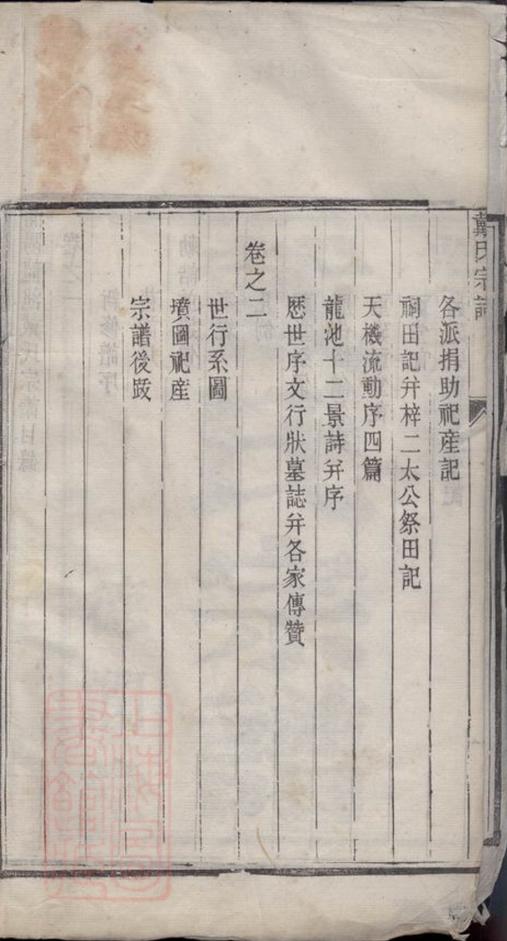 戴氏宗譜
各派捐助祀產記
祠田記并梓二太公祭田記
天機流動序四篇
龍池十二景詩并序
歷世序文行狀墓誌并各家傳贊
卷之二
世行系圖
墳圖祀産
宗譜後跋